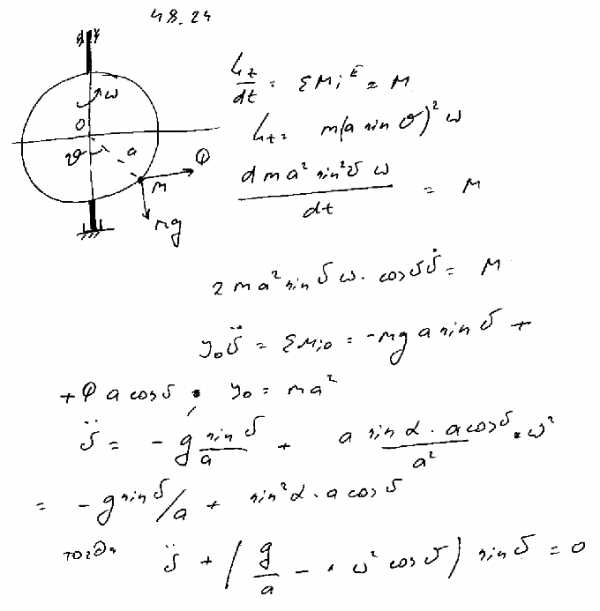 48.24
ω
O
ϑ
a
M
Φ
mg
L_z/dt = ΣM_i^E = M
L_z = m(a sin ϑ)² ω
d ma² sin²ϑ ω / dt = M
2 ma² sin ϑ ω · cos ϑ ϑ̇ = M
J₀ϑ̈ = ΣM_i0 = -mg a sin ϑ +
+ Φ a cos ϑ, J₀ = ma²
ϑ̈ = - g sin ϑ / a + a sin α · a cos ϑ / a² · ω²
= - g sin ϑ / a + sin² α · a cos ϑ
тогда ϑ̈ + (g/a - ω² cos ϑ) sin ϑ = 0